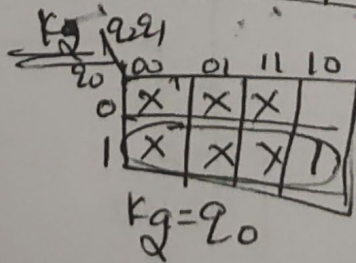 Kg q2q1
q0 00 01 11 10
0 X X X
1 X X X 1
Kg=q0